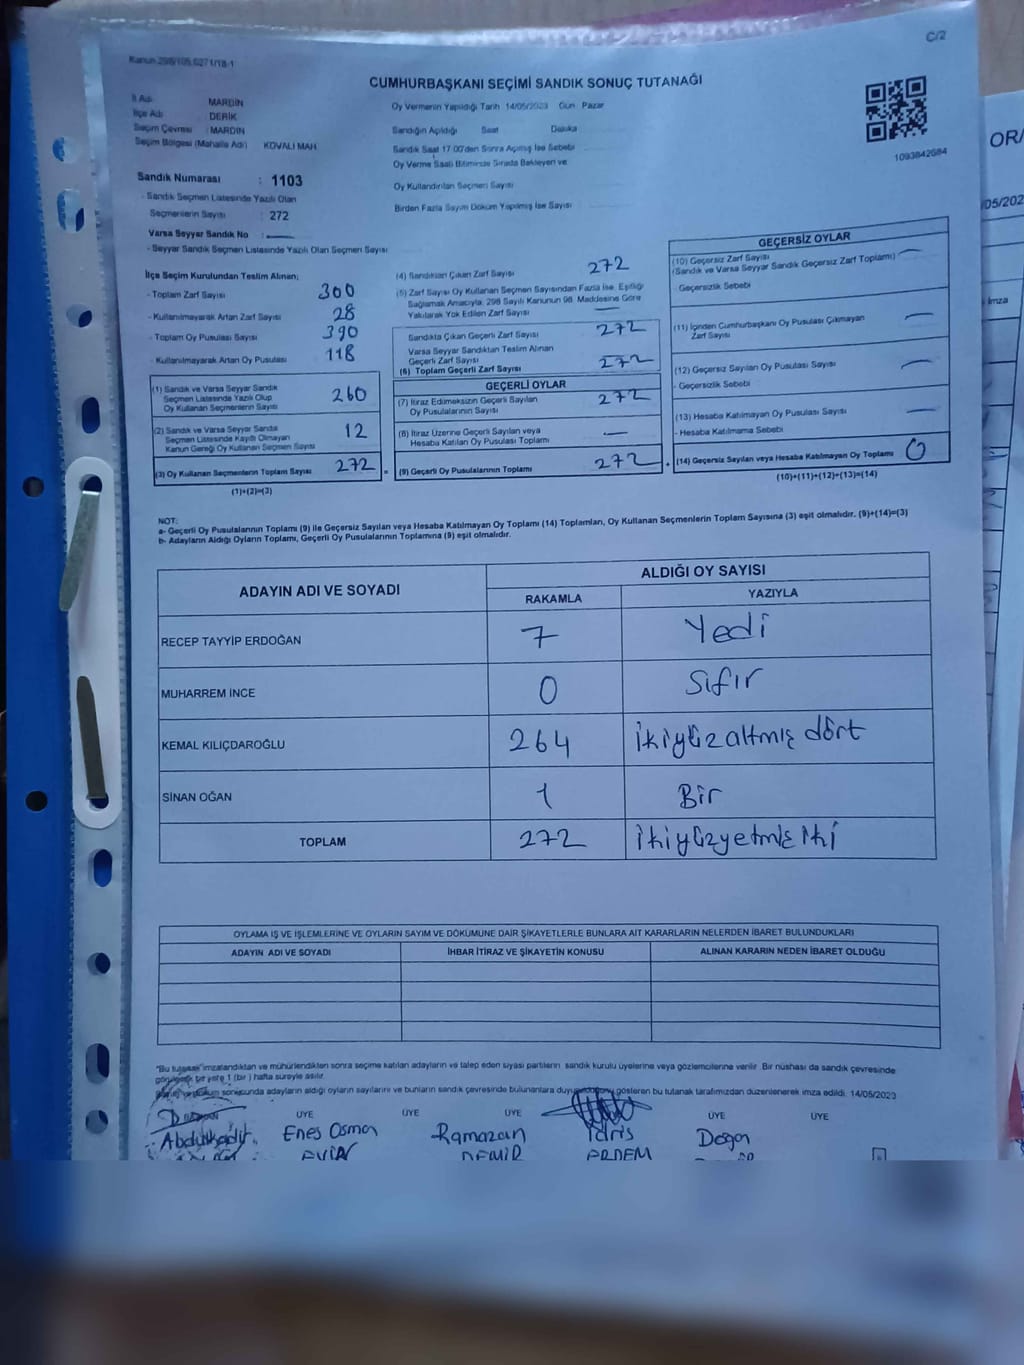 C/2
Kanun 298/105,6271/18-1
CUMHURBAŞKANI SEÇİMİ SANDIK SONUÇ TUTANAĞI
İl Adı MARDİN
İlçe Adı DERİK
Seçim Çevresi : MARDİN
Seçim Bölgesi (Mahalle Adı) KOVALI MAH.
Sandık Numarası : 1103
- Sandık Seçmen Listesinde Yazılı Olan
Seçmenlerin Sayısı : 272
Varsa Seyyar Sandık No :
- Seyyar Sandık Seçmen Listesinde Yazılı Olan Seçmen Sayısı
Oy Vermenin Yapıldığı Tarih 14/05/2023 Gün Pazar
Sandığın Açıldığı Saat Dakika
Sandık Saat 17.00'den Sonra Açılmış İse Sebebi
Oy Verme Saati Bitiminde Sırada Bekleyen ve
Oy Kullandırılan Seçmen Sayısı
Birden Fazla Sayım Döküm Yapılmış İse Sayısı
1093842684
İlçe Seçim Kurulundan Teslim Alınan;
- Toplam Zarf Sayısı 300
- Kullanılmayarak Artan Zarf Sayısı 28
- Toplam Oy Pusulası Sayısı 390
- Kullanılmayarak Artan Oy Pusulası 118
(1) Sandık ve Varsa Seyyar Sandık
Seçmen Listesinde Yazılı Olup
Oy Kullanan Seçmenlerin Sayısı 260
(2) Sandık ve Varsa Seyyar Sandık
Seçmen Listesinde Kayıtlı Olmayan
Kanun Gereği Oy Kullanan Seçmen Sayısı 12
(3) Oy Kullanan Seçmenlerin Toplam Sayısı 272
(1)+(2)=(3)
(4) Sandıktan Çıkan Zarf Sayısı 272
(5) Zarf Sayısı Oy Kullanan Seçmen Sayısından Fazla İse, Eşitliği
Sağlamak Amacıyla, 298 Sayılı Kanunun 98. Maddesine Göre
Yakılarak Yok Edilen Zarf Sayısı —
Sandıkta Çıkan Geçerli Zarf Sayısı 272
Varsa Seyyar Sandıktan Teslim Alınan
Geçerli Zarf Sayısı
(6) Toplam Geçerli Zarf Sayısı 272
GEÇERLİ OYLAR
(7) İtiraz Edilmeksizin Geçerli Sayılan
Oy Pusulalarının Sayısı 272
(8) İtiraz Üzerine Geçerli Sayılan veya
Hesaba Katılan Oy Pusulası Toplamı —
(9) Geçerli Oy Pusulalarının Toplamı 272
GEÇERSİZ OYLAR
(10) Geçersiz Zarf Sayısı
(Sandık ve Varsa Seyyar Sandık Geçersiz Zarf Toplamı) —
- Geçersizlik Sebebi
(11) İçinden Cumhurbaşkanı Oy Pusulası Çıkmayan
Zarf Sayısı —
(12) Geçersiz Sayılan Oy Pusulası Sayısı —
- Geçersizlik Sebebi
(13) Hesaba Katılmayan Oy Pusulası Sayısı —
- Hesaba Katılmama Sebebi
(14) Geçersiz Sayılan veya Hesaba Katılmayan Oy Toplamı 0
(10)+(11)+(12)+(13)=(14)
NOT:
a- Geçerli Oy Pusulalarının Toplamı (9) ile Geçersiz Sayılan veya Hesaba Katılmayan Oy Toplamı (14) Toplamları, Oy Kullanan Seçmenlerin Toplam Sayısına (3) eşit olmalıdır. (9)+(14)=(3)
b- Adayların Aldığı Oyların Toplamı, Geçerli Oy Pusulalarının Toplamına (9) eşit olmalıdır.
ADAYIN ADI VE SOYADI ALDIĞI OY SAYISI
RAKAMLA YAZIYLA
RECEP TAYYİP ERDOĞAN 7 Yedi
MUHARREM İNCE 0 Sıfır
KEMAL KILIÇDAROĞLU 264 İkiyüzaltmış dört
SİNAN OĞAN 1 Bir
TOPLAM 272 İkiyüzyetmiş iki
OYLAMA İŞ VE İŞLEMLERİNE VE OYLARIN SAYIM VE DÖKÜMÜNE DAİR ŞİKAYETLERLE BUNLARA AİT KARARLARIN NELERDEN İBARET BULUNDUKLARI
ADAYIN ADI VE SOYADI İHBAR İTİRAZ VE ŞİKAYETİN KONUSU ALINAN KARARIN NEDEN İBARET OLDUĞU
"Bu tutanak" imzalandıktan ve mühürlendikten sonra seçime katılan adayların ve talep eden siyasi partilerin sandık kurulu üyelerine veya gözlemcilerine verilir. Bir nüshası da sandık çevresinde
görülecek bir yere 1 (bir) hafta süreyle asılır.
sonucunda adayların aldığı oyların sayılarını ve bunların sandık çevresinde bulunanlara gösteren bu tutanak tarafımızdan düzenlenerek imza edildi. 14/05/2023
ÜYE ÜYE ÜYE ÜYE ÜYE
Abdulkadir Enes Osman Ramazan İdris Doğan
DEMİR ERDEM
OR/
/05/202
İmza